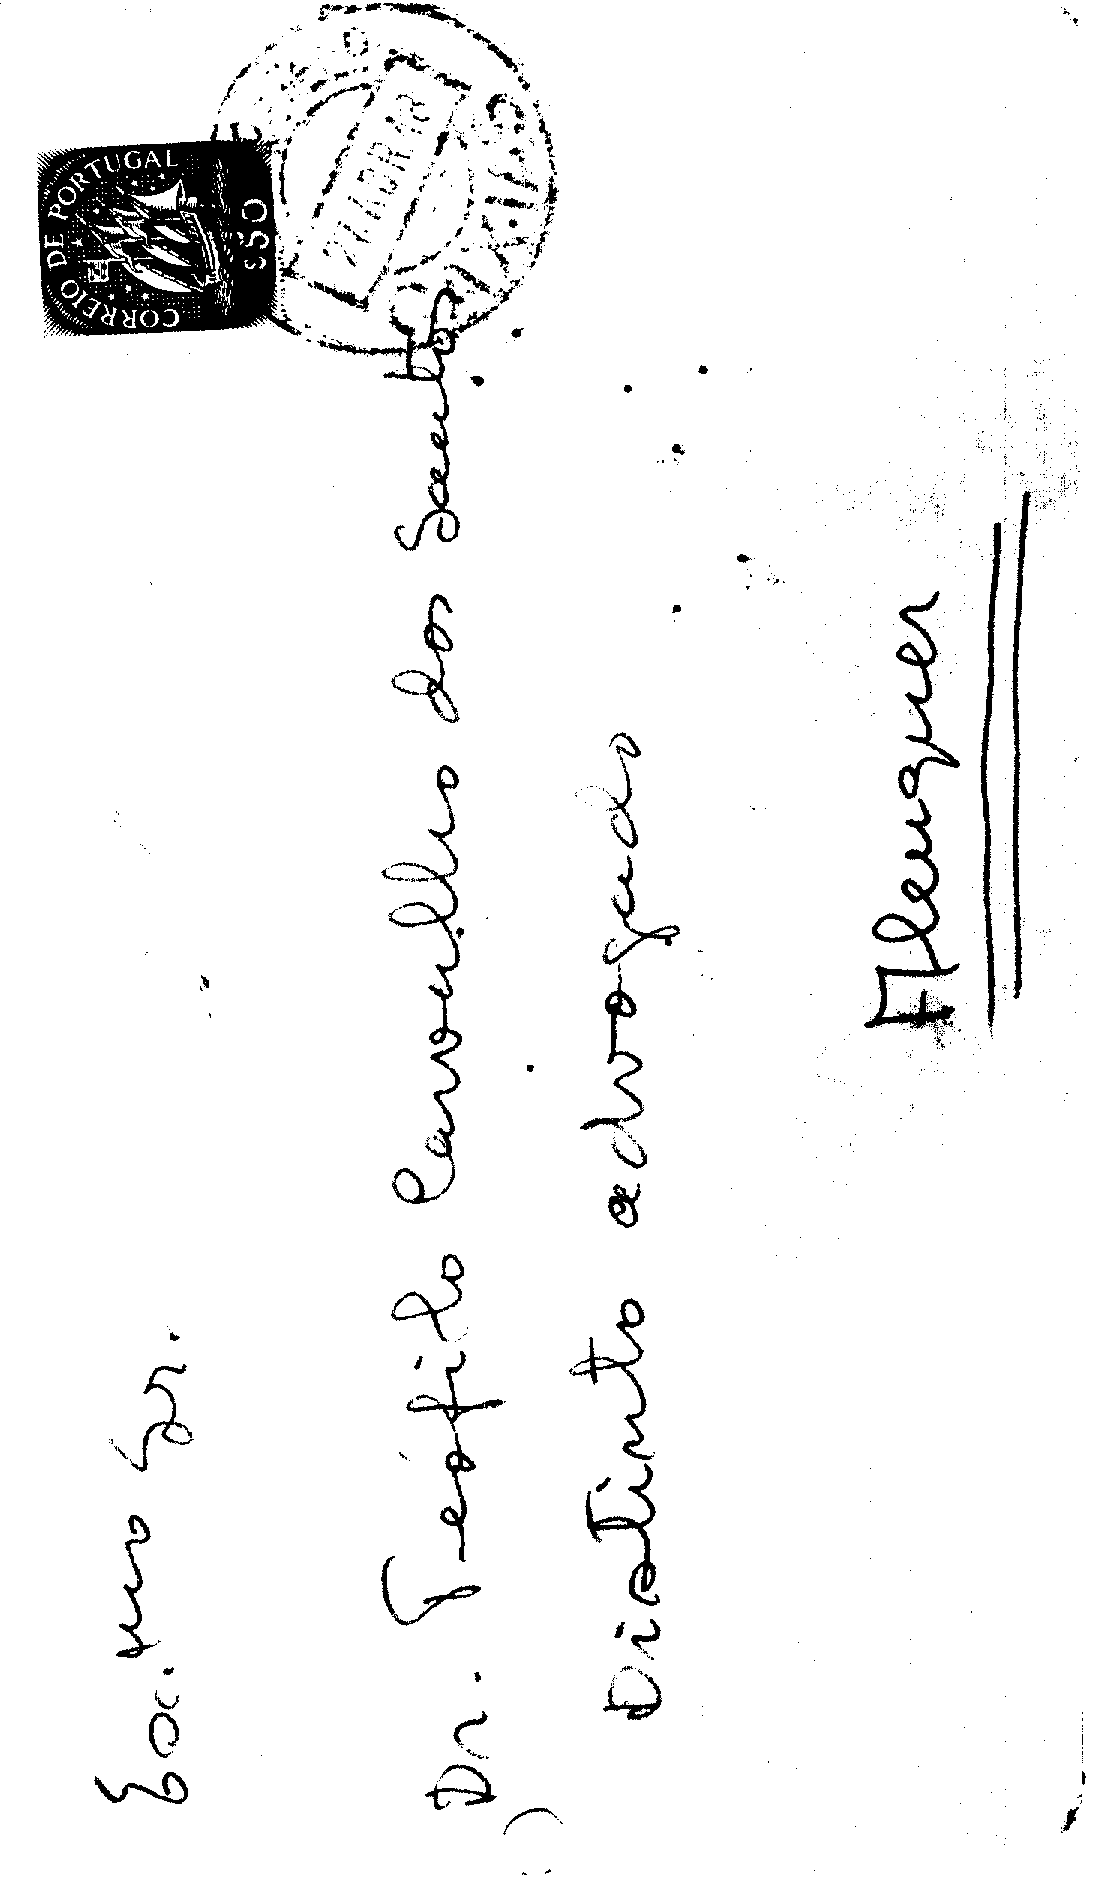 CORREIO DE PORTUGAL
$50
27 ABR 48
Exc.mo Sr.
Dr. Teófilo Carvalho dos Santos
Distinto advogado
Alenquer